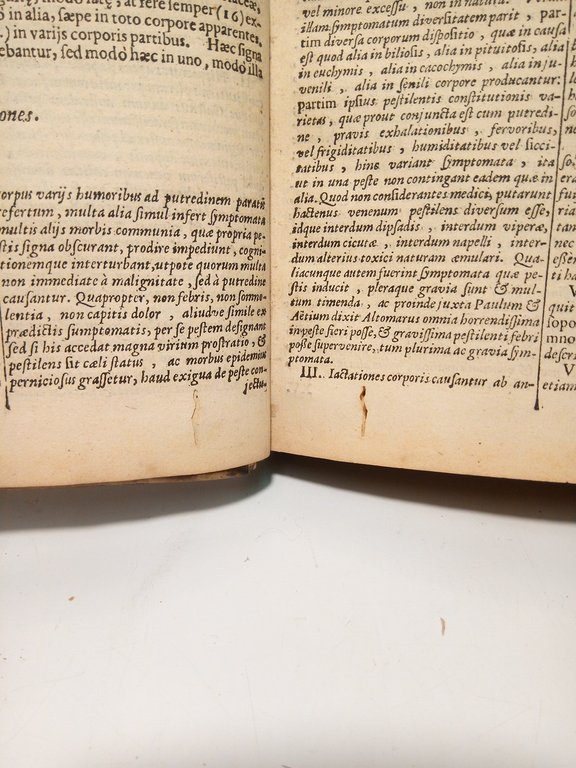 modo latę, at fere semper (16) ex-
in alia, sæpe in toto corpore apparentes.
) in varijs corporis partibus. Hæc signa
ebantur, sed modo hæc in uno, modo illa
ones.
corpus varijs humoribus ad putredinem paratis
refertum, multa alia simul infert symptomata
multis alijs morbis communia, quæ propria pe-
stis signa obscurant, prodire impediunt, cogni-
tionemque interturbant, utpote quorum multa
non immediate à malignitate, sed à putredine
causantur. Quapropter, non febris, non somno-
lentia, non capitis dolor, aliudve simile ex
prædictis sumptomatis, per se pestem designans
sed si his accedat magna virium prostratio, &
pestilens sit cæli status, ac morbus epidemius
perniciosus grassetur, haud exigua de peste con-
jectu-
vel minore excessu, non in natura.
illam. Symptomatum diversitatem parit, par-
tim diversa corporum dispositio, quæ in causa
est quod alia in biliosis, alia in pituitosis, alia
in euchymis, alia in cacochymis, alia in ju-
venili, alia in senili corpore producantur:
partim ipsius pestilentis constitutionis va-
rietas, quæ prout conjuncta est cum putredi-
ne, pravis exhalationibus, fervoribus,
vel frigiditatibus, humiditatibus vel sicci-
tatibus, hinc variant symptomata, ita
ut in una peste non contingant eadem quæ in
alia. Quod non considerantes medici, putarunt
hactenus venenum pestilens diversum esse,
idque interdum dipsadis, interdum viperæ,
interdum cicutæ, interdum napelli, inter-
dum alterius toxici naturam æmulari. Qua-
liacunque autem fuerint symptomata quæ pe-
stis inducit, pleraque gravia sunt & mul-
tum timenda, ac proinde juxta Paulum &
Aetium dixit Altomarus omnia horrendissima
in peste fieri posse, & gravissima pestilenti febri
posse supervenire, tum plurima ac gravia sym-
ptomata.
III. Iactationes corporis causantur ab an-
etiam